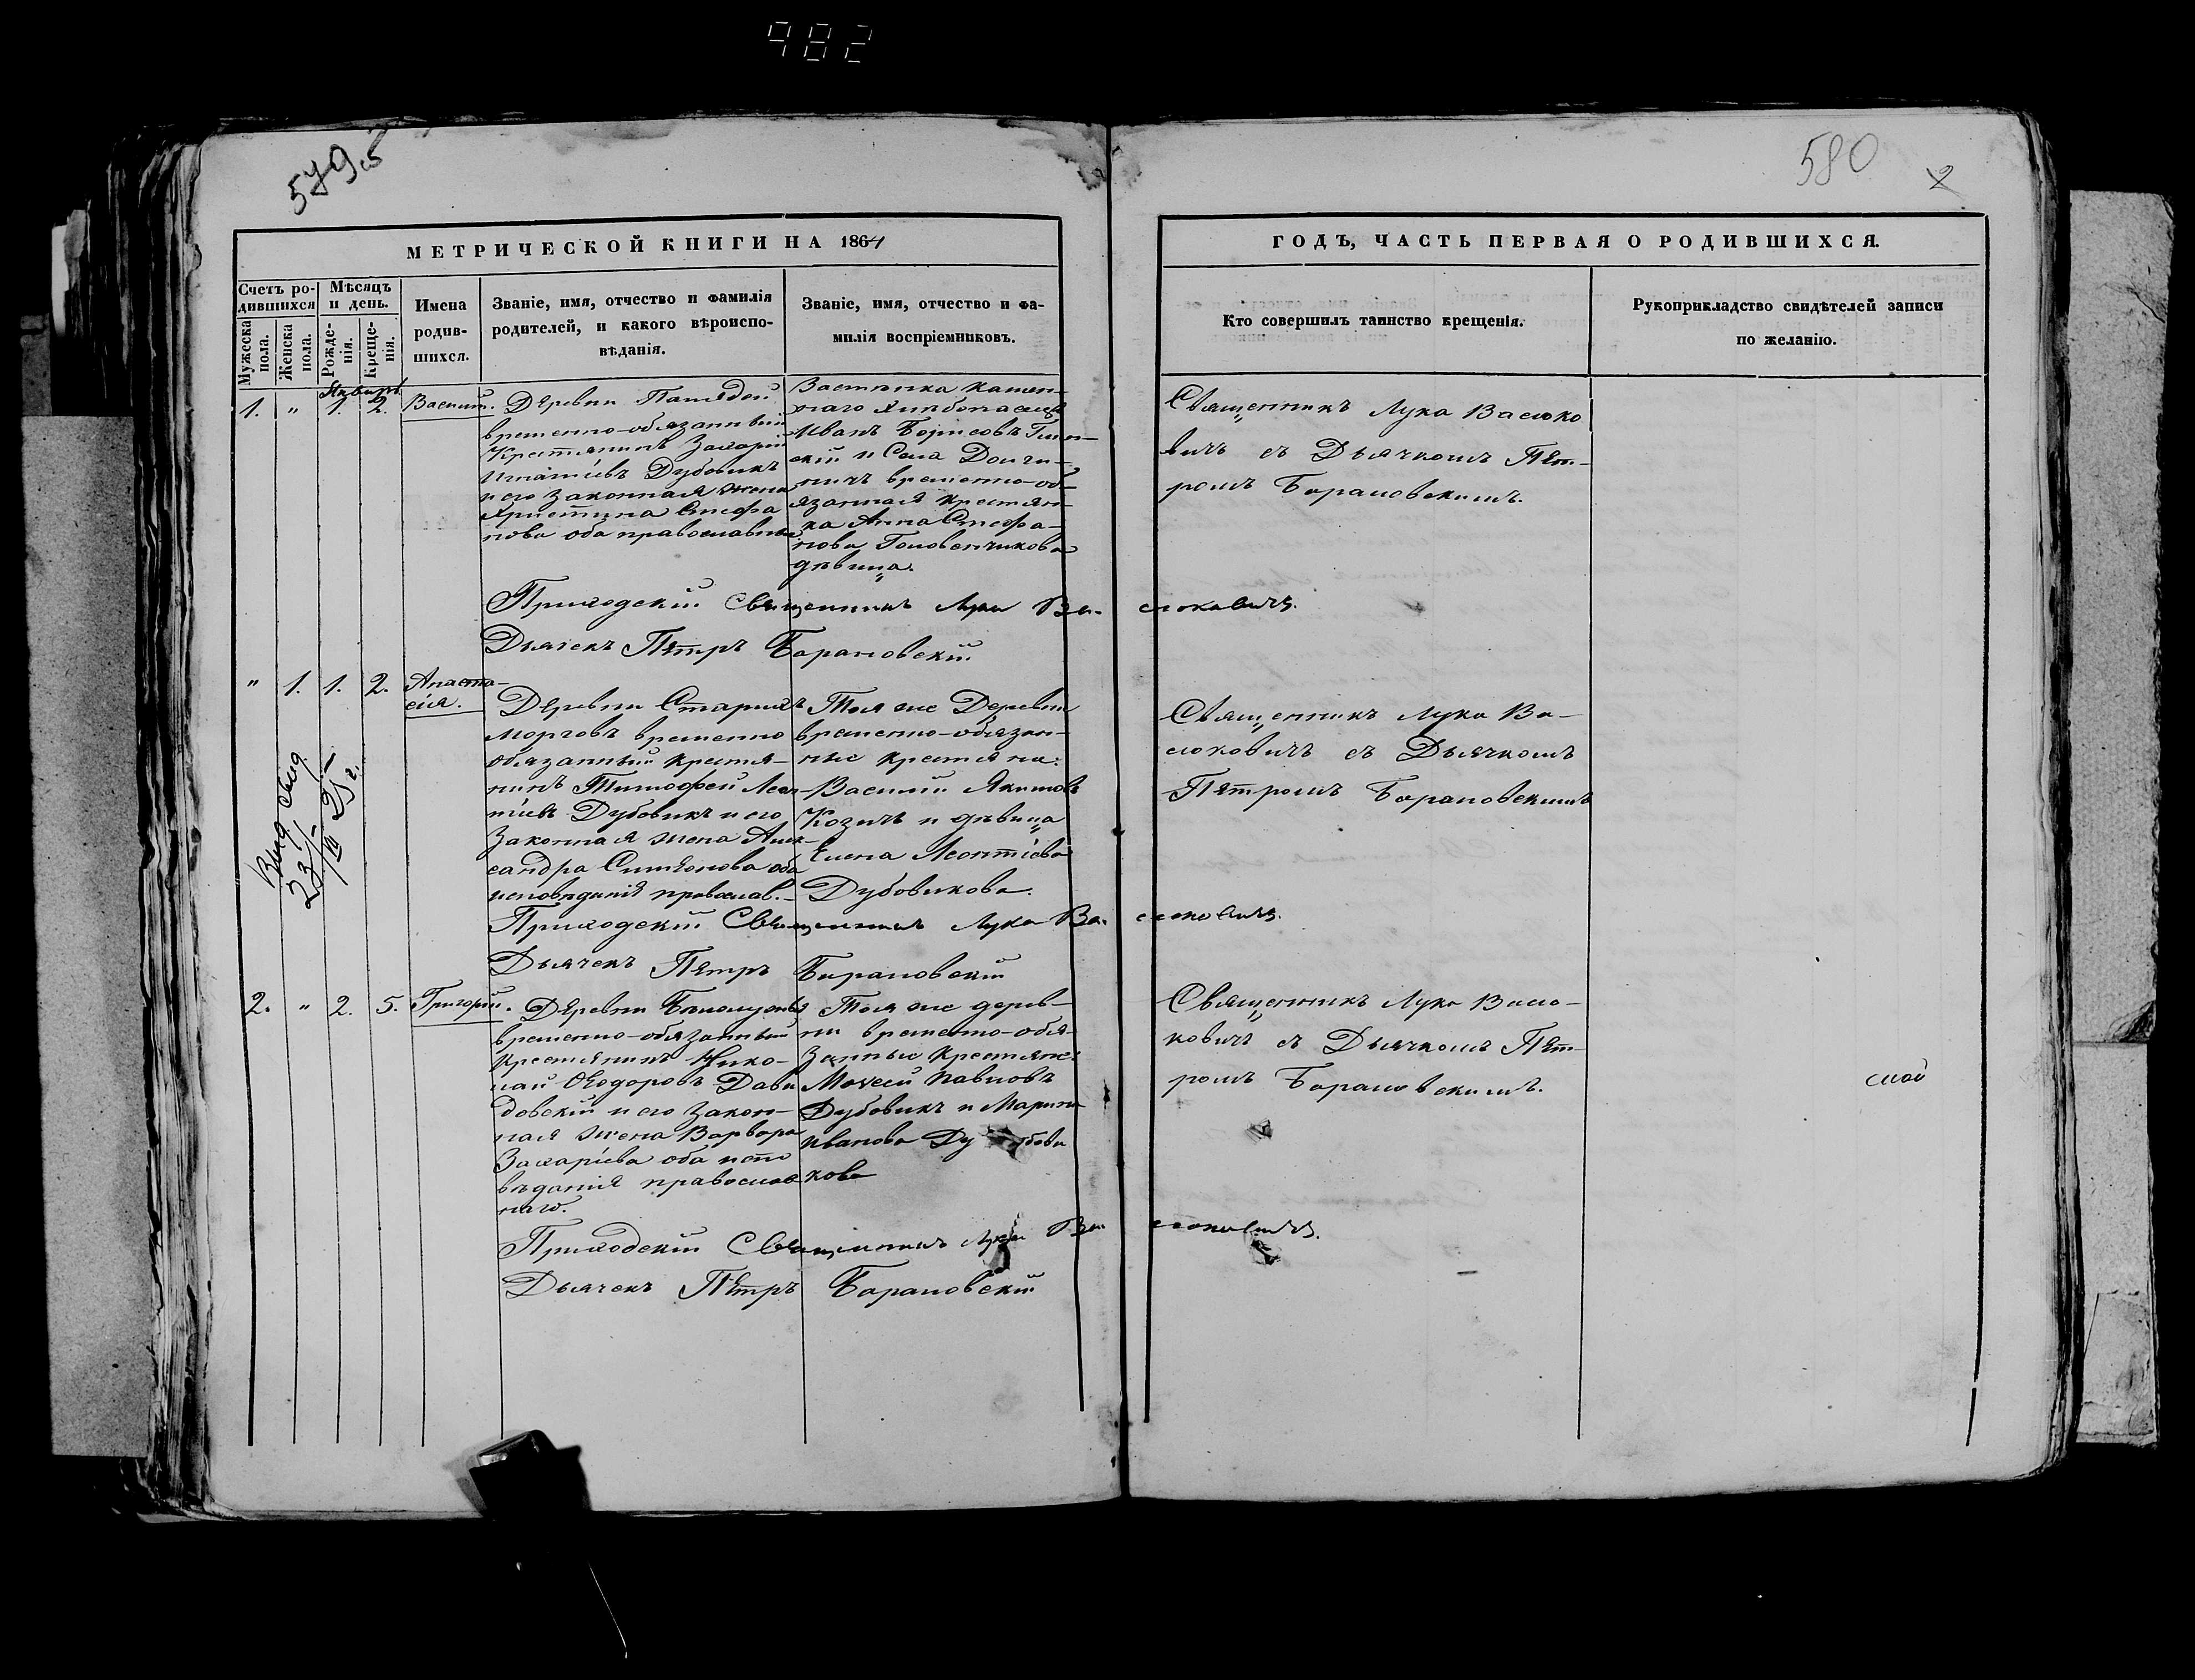 982
579об
580
2
МЕТРИЧЕСКОЙ КНИГИ НА 1864
ГОДЪ, ЧАСТЬ ПЕРВАЯ О РОДИВШИХСЯ.
Счетъ ро-
дившихся
Мѣсяцъ
и день.
Мужеска
пола.
Женска
пола.
Рожде-
нія.
Креще-
нія.
Имена
родив-
шихся.
Званіе, имя, отчество и фамилія
родителей, и какого вѣроиспо-
вѣданія.
Званіе, имя, отчество и фа-
милія воспріемниковъ.
Кто совершилъ таинство крещенія.
Рукоприкладство свидѣтелей записи
по желанію.
Январь
1. " 1. 2. Василій.
Деревни
временно-обязанный
Крестьянинъ Захарій
Игнатіевъ Дубовикъ
и его законная жена
Христина Стефа
нова оба православные
Застѣнка Камен-
наго
Иванъ Борисовъ
скій и Села Долги-
ничъ временно-об-
язанная крестьян-
ка Анна Стефа-
нова Головенчикова
дѣвица.
Священникъ Лука Васюко
вичъ съ Дьячкомъ Пет-
ромъ Барановскимъ.
Приходскій Священникъ Лука Ва-сюковичъ.
Дьячекъ Петръ Барановскій
" 1. 1. 2. Анаста-
сія.
Деревни Старыхъ
Морговъ временно
обязанный крестья-
нинъ Тимофей Леон-
тіевъ Дубовикъ и его
законная жена Алек-
сандра Симеонова оба
исповѣданія православ.
Тоя же Деревни
временно-обязан-
ные крестьяне:
Василій Якимовъ
Козичъ и дѣвица
Елена Леонтіева
Дубовикова.
Священникъ Лука Ва-
сюковичъ съ Дьячкомъ
Петромъ Барановскимъ
Выд.
23/
VII 25 г.
Приходскій Священникъ Лука Ва-сюковичъ.
Дьячекъ Петръ Барановскій
2. " 2. 5. Григорій.
Деревни
временно-обязанный
крестьянинъ Нико-
лай Ѳеодоровъ Дави
довскій и его закон-
ная жена Варвара
Захаріева оба испо
вѣданія православ
наго.
Тоя же дерев-
ни временно-обя-
занные крестьяне:
Моѵсей Павловъ
Дубовикъ и Марина
Иванова Ду бови
кова
Священникъ Лука Васю-
ковичъ съ Дьячкомъ Пет-
ромъ Барановскимъ.
Приходскій Священникъ Лука Ва-сюковичъ.
Дьячекъ Петръ Барановскій